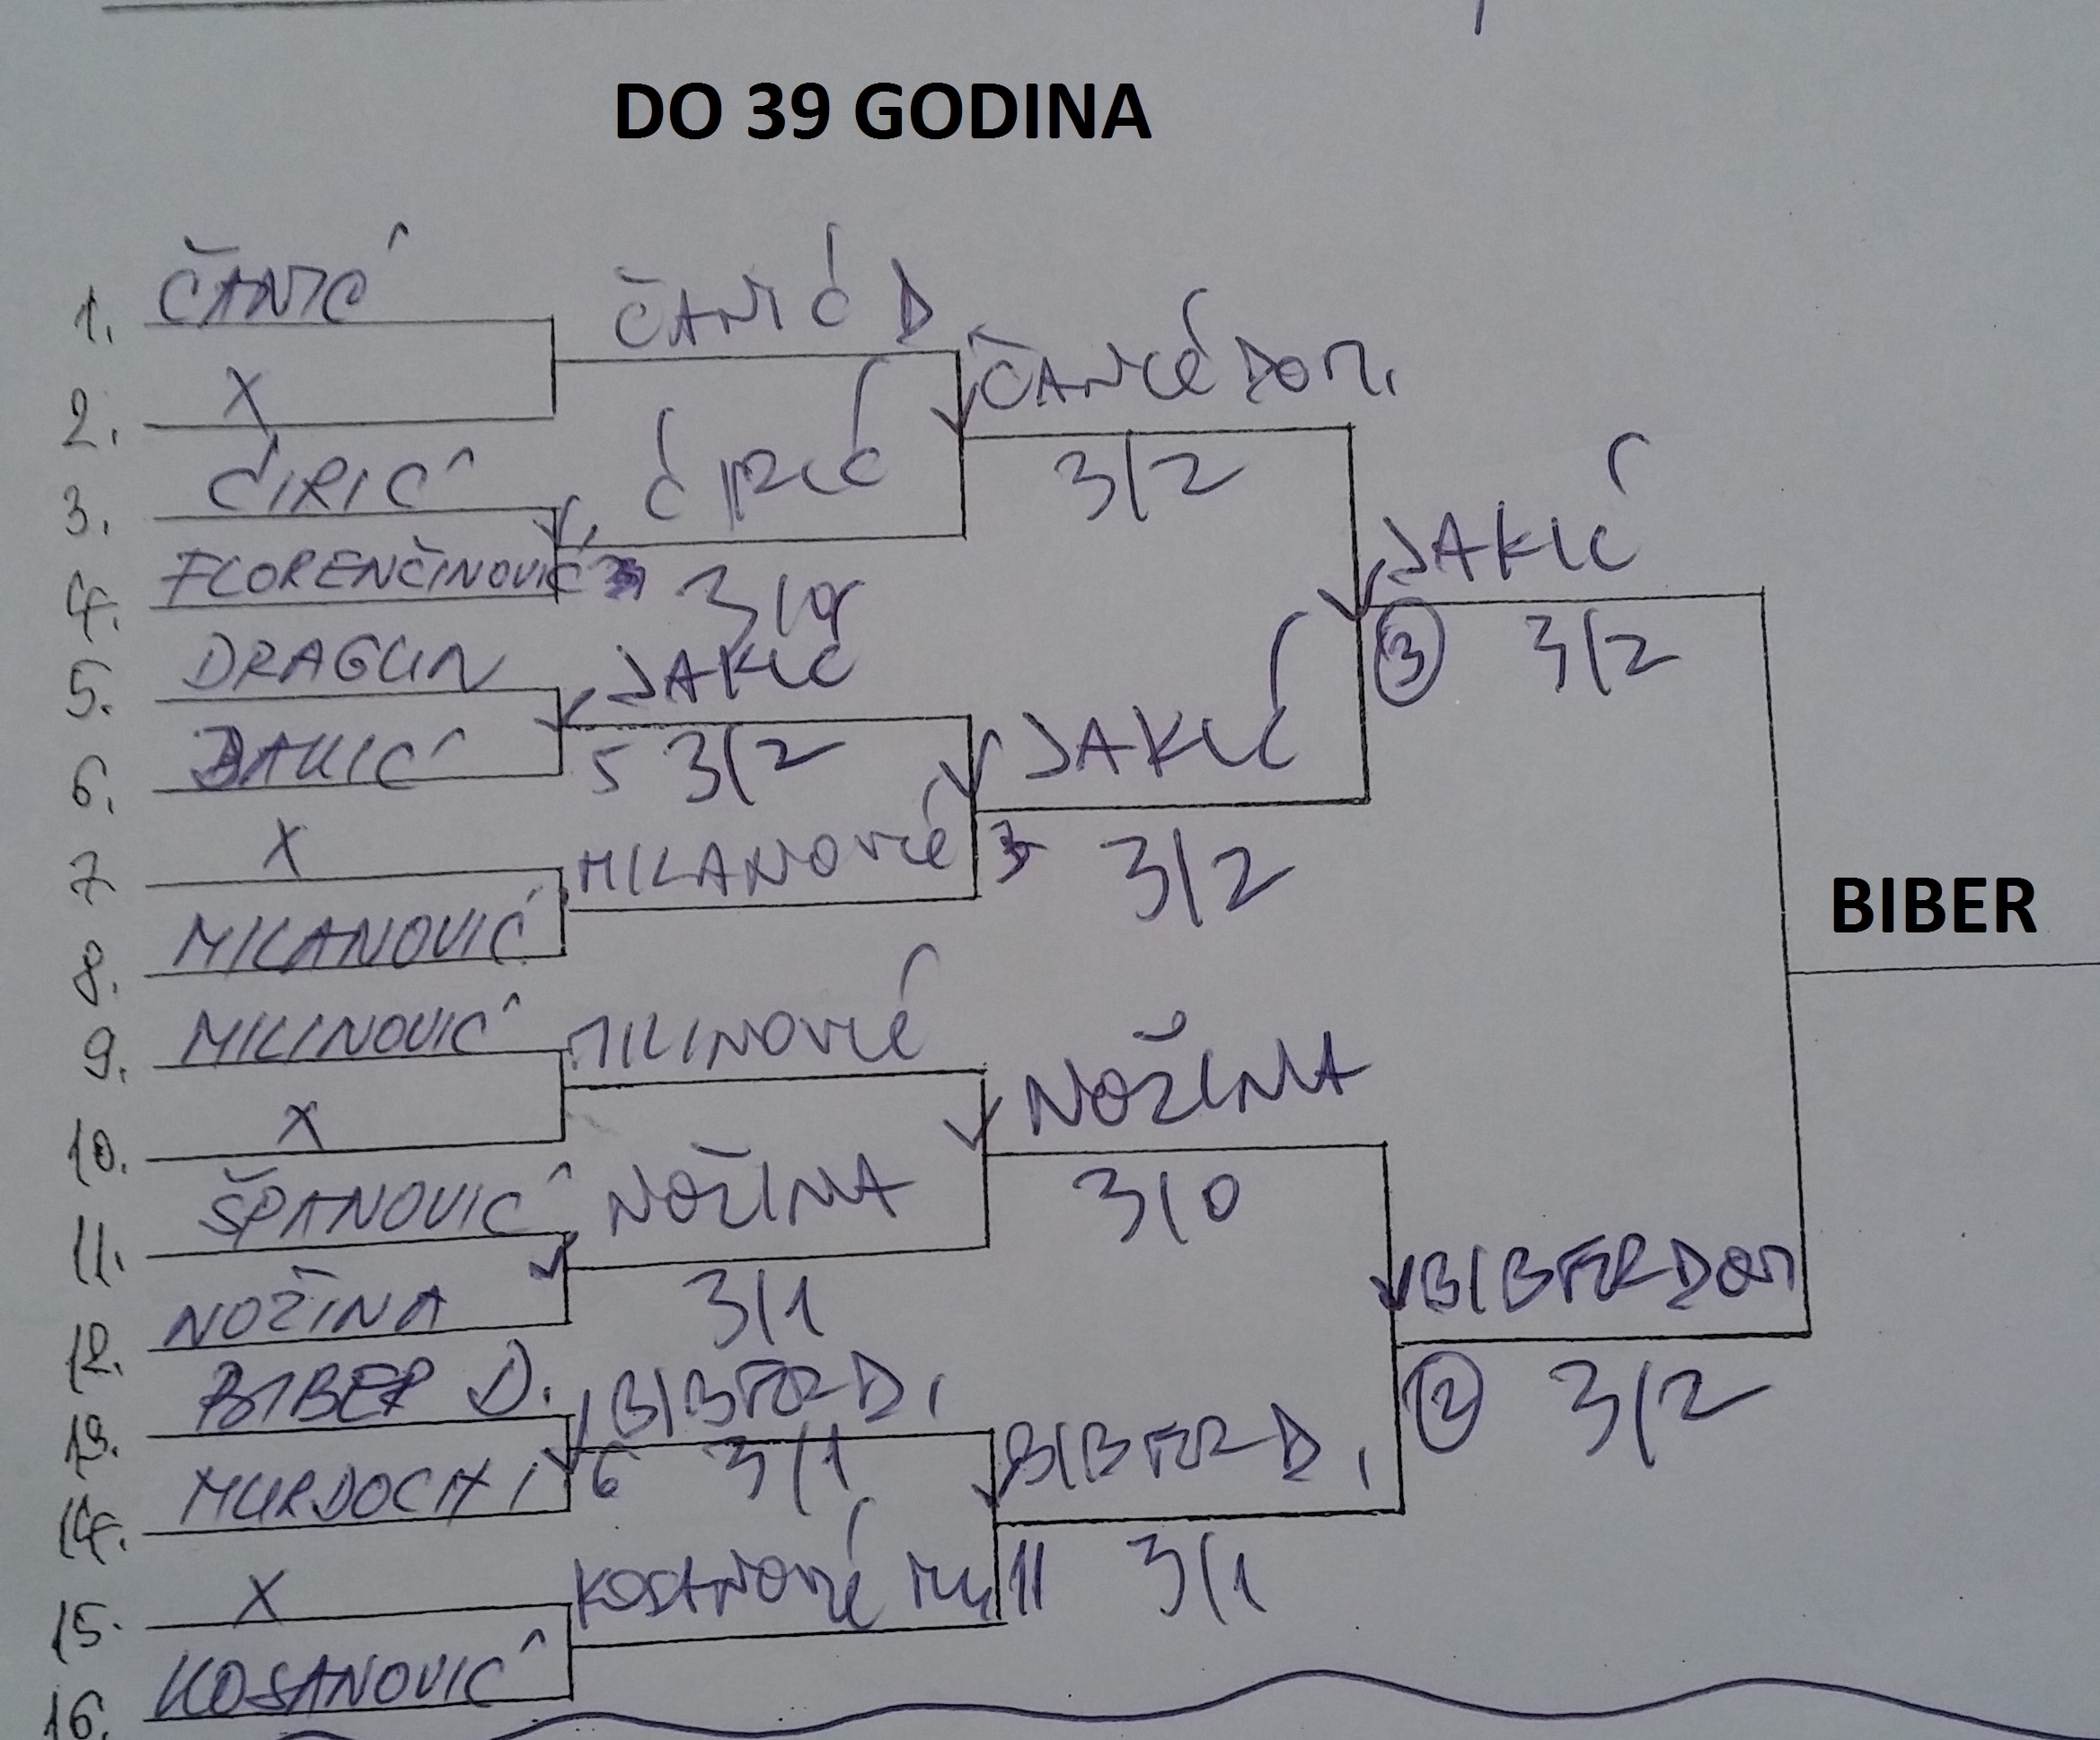 DO 39 GODINA
1. ČANIĆ
2. X
3. ĆIRIĆ
4. FLORENČINOVIĆ
5. DRAGUN
6. JAKIĆ
7. X
8. MILANOVIĆ
9. MILINOVIĆ
10. X
11. ŠPANOVIĆ
12. NOŽINA
13. BIBER D.
14. MURDOCH
15. X
16. KOSANOVIĆ
ČANIĆ D
ĆIRIĆ
JAKIĆ
5 3/2
MILANOVIĆ
MILINOVIĆ
NOŽINA
3/1
BIBER D.
6 3/1
KOSANOVIĆ
ČANIĆ DOM.
3/2
JAKIĆ
3 3/2
NOŽINA
3/0
BIBER D.
11 3/1
JAKIĆ
3 3/2
BIBER DOM
2 3/2
BIBER